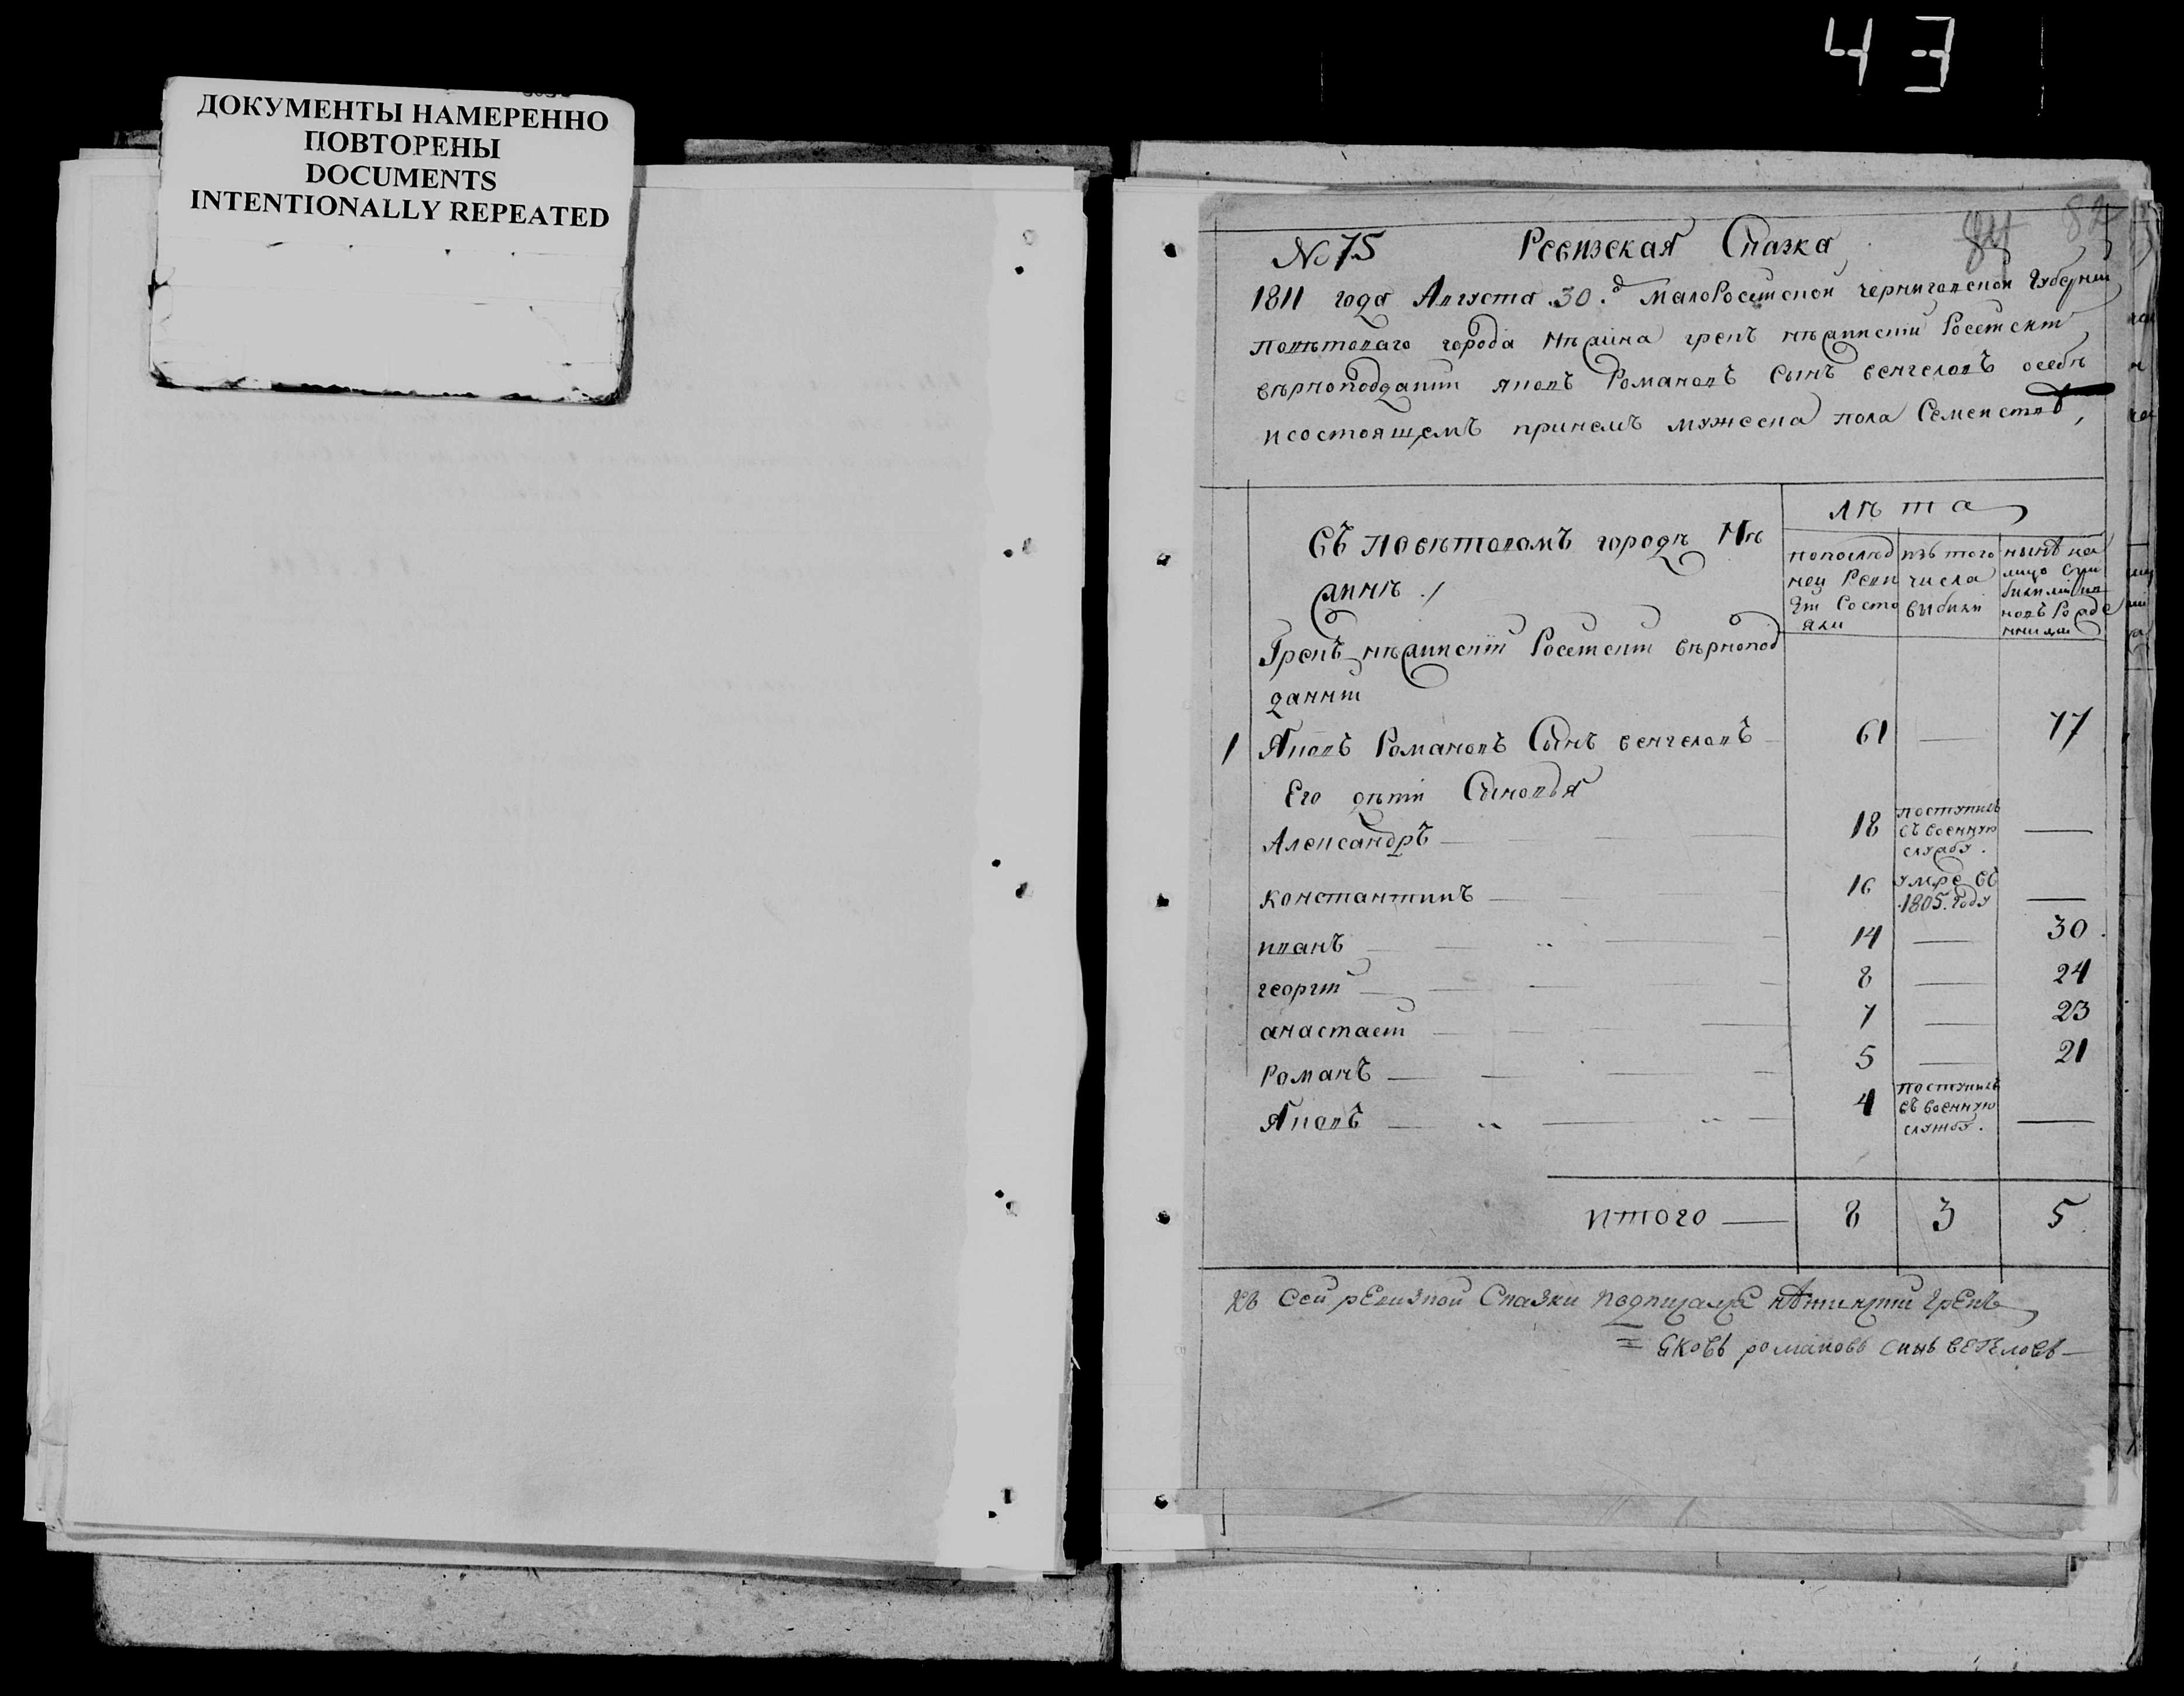 43
ДОКУМЕНТЫ НАМЕРЕННО
ПОВТОРЕНЫ
DOCUMENTS
INTENTIONALLY REPEATED
84 82
№ 75 Ревизская Сказка
1811 года Августа 30.д Малоросийской черниговской Губернии
поветоваго города Нѣжина грекъ нѣжинский Росийский
вѣрноподданий яковъ Романовъ Сынъ венгеловъ осебѣ
исостоящемъ принемъ мужеска пола Семействе,
Въ поветовомъ городѣ Нѣ
жинѣ /
лѣта
попослѣд
ней Реви
зии Состо
яли
изъ того
числа
выбили
нынѣ на
лицо
Грекъ нѣжинский Росийский вѣрнопод
данний
1 Яковъ Романовъ Сынъ венгеловъ 61 — 77
Его дети Сыновья
Александръ — 18 поступилъ
въ военную
службу. —
константинъ — 16 умре въ
1805. Году —
иванъ — 14 — 30.
георгий — 8 — 24
анастасий — 7 — 23
Романъ — 5 — 21
Яковъ — 4 поступилъ
въ военную
службу. —
итого — 8 3 5.
Къ сей ревизкой Сказки подписался нѣжинский грекъ
= Яковъ романовъ синъ венгеловъ —